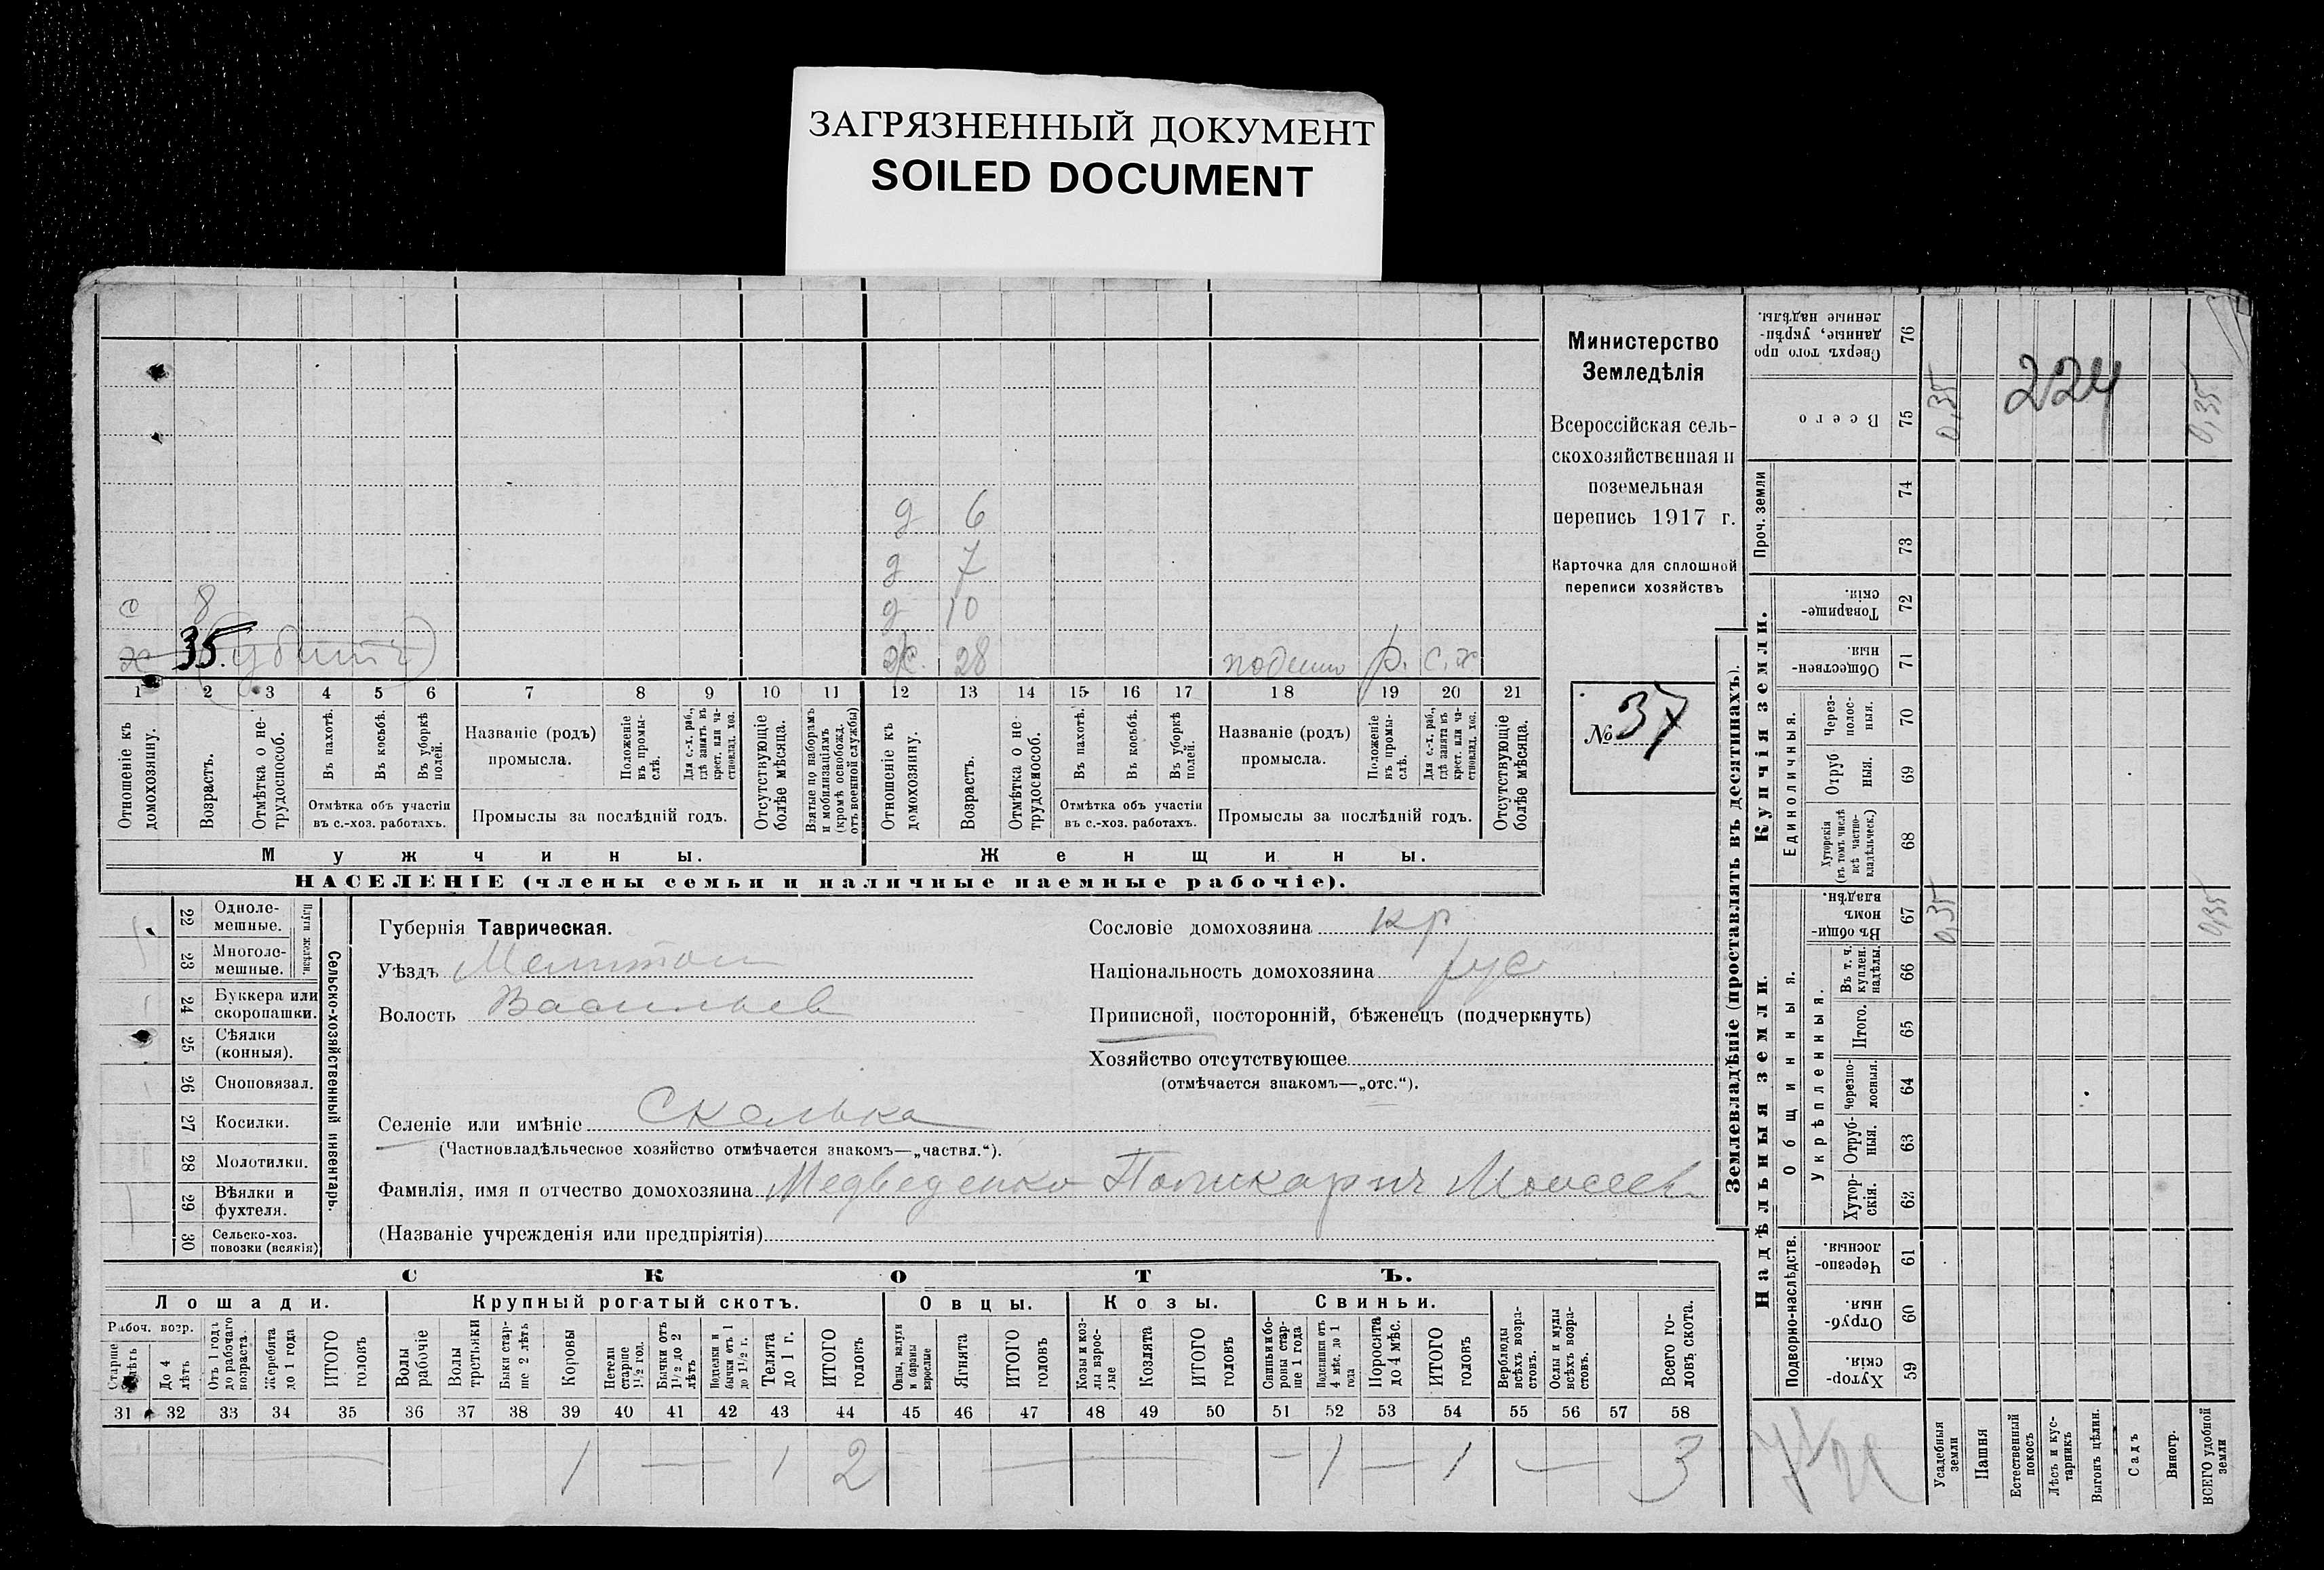 ЗАГРЯЗНЕННЫЙ ДОКУМЕНТ
SOILED DOCUMENT
д 6
д 7
с 8 д 10
х 35 (убитъ) ж. 28 р. с.х
1 2 3 4 5 6 7 8 9 10 11 12 13 14 15 16 17 18 19 20 21
Отношеніе къ домохозяину.
Возрастъ.
Отмѣтка о нетрудоспособ.
Въ пахотѣ.
Въ косьбѣ.
Въ уборкѣ полей.
Отмѣтка объ участіи
въ с.-хоз. работахъ.
Названіе (родъ)
промысла.
Положеніе въ промыслѣ.
Для с.-х. раб., гдѣ занятъ въ крест. или частновлад. хоз.
Промыслы за послѣдній годъ.
Отсутствующіе болѣе мѣсяца.
Взятые по наборамъ и мобилизаціямъ (кромѣ освобожд. отъ военной службы)
Отношеніе къ домохозяину.
Возрастъ.
Отмѣтка о нетрудоспособ.
Въ пахотѣ.
Въ косьбѣ.
Въ уборкѣ полей.
Отмѣтка объ участіи
въ с.-хоз. работахъ.
Названіе (родъ)
промысла.
Положеніе въ промыслѣ.
Для с.-х. раб., гдѣ занята въ крест. или частновлад. хоз.
Промыслы за послѣдній годъ.
Отсутствующіе болѣе мѣсяца.
Мужчины.
Женщины.
НАСЕЛЕНІЕ (члены семьи и наличные наемные рабочіе).
Министерство
Земледѣлія
Всероссійская сель-
скохозяйственная и
поземельная
перепись 1917 г.
Карточка для сплошной
переписи хозяйствъ
№ 37
22 Одноле-
мешные.
23 Многоле-
мешные.
Плуги желѣзн.
24 Буккера или
скоропашки.
25 Сѣялки
(конныя).
26 Сноповязал.
27 Косилки.
28 Молотилки.
29 Вѣялки и
фухтеля.
30 Сельско-хоз.
повозки (всякія)
Сельско-хозяйственный инвентарь.
Губернія Таврическая.
Уѣздъ Мелитоп
Волость Васильев
Селеніе или имѣніе Скелька
(Частновладѣльческое хозяйство отмѣчается знакомъ—„частвл.“).
Фамилія, имя и отчество домохозяина Медведенко Поликарпъ Моисеев
(Названіе учрежденія или предпріятія)
Сословіе домохозяина кр
Національность домохозяина рус
Приписной, посторонній, бѣженецъ (подчеркнуть)
Хозяйство отсутствующее
(отмѣчается знакомъ—„отс.“).
СКОТЪ.
Лошади. Крупный рогатый скотъ. Овцы. Козы. Свиньи.
Рабоч. возр.
Старше лѣтъ
До 4 лѣтъ
Отъ 1 года до рабочаго возраста.
Жеребята до 1 года
ИТОГО головъ
Волы рабочіе
Волы третьяки
Быки старше 2 лѣтъ
Коровы
Нетели старше 1½ год.
Бычки отъ 1½ до 2 лѣтъ
Нетелки и бычки отъ 1 до 1½ г.
Телята до 1 г.
ИТОГО головъ
Овцы, валухи и бараны взрослые
Ягнята
ИТОГО головъ
Козы и козлы взрослые
Козлята
ИТОГО головъ
Свиньи и бороны старше 1 года
Подсвинки отъ 4 мѣс. до 1 года
Поросята до 4 мѣс.
ИТОГО головъ
Верблюды всѣхъ возрастовъ.
Ослы и мулы всѣхъ возрастовъ.
Всего головъ скота.
31 32 33 34 35 36 37 38 39 40 41 42 43 44 45 46 47 48 49 50 51 52 53 54 55 56 57 58
1 — 1 2 — — 1 — 1 — 3
Землевладѣніе (проставлять въ десятинахъ).
Надѣльныя земли.
Купчія земли.
Проч. земли
Подворно-наслѣдств.
Общинныя.
Укрѣпленныя.
Единоличныя.
Сверхъ того проданные, укрѣпленные надѣлы. 76
Всего 75 0,35 224 0,35
74
73
Товарищескія. 72
Общественныя. 71
Черезполосныя. 70
Отрубныя. 69
Хуторскія (въ томъ числѣ всѣ частновладѣльческ.) 68
Въ общинномъ владѣн. 67 0,35 0,35
Въ т. ч. куплен. надѣлы 66
Итого. 65
Черезполосныя. 64
Отрубныя. 63
Хуторскія. 62
Черезполосныя. 61
Отрубныя. 60
Хуторскія. 59
Усадебныя земли
Пашня
Естественный покосъ
Лѣсъ и кустарникъ
Выгонъ цѣлин.
Садъ
Виногр.
ВСЕГО удобной земли